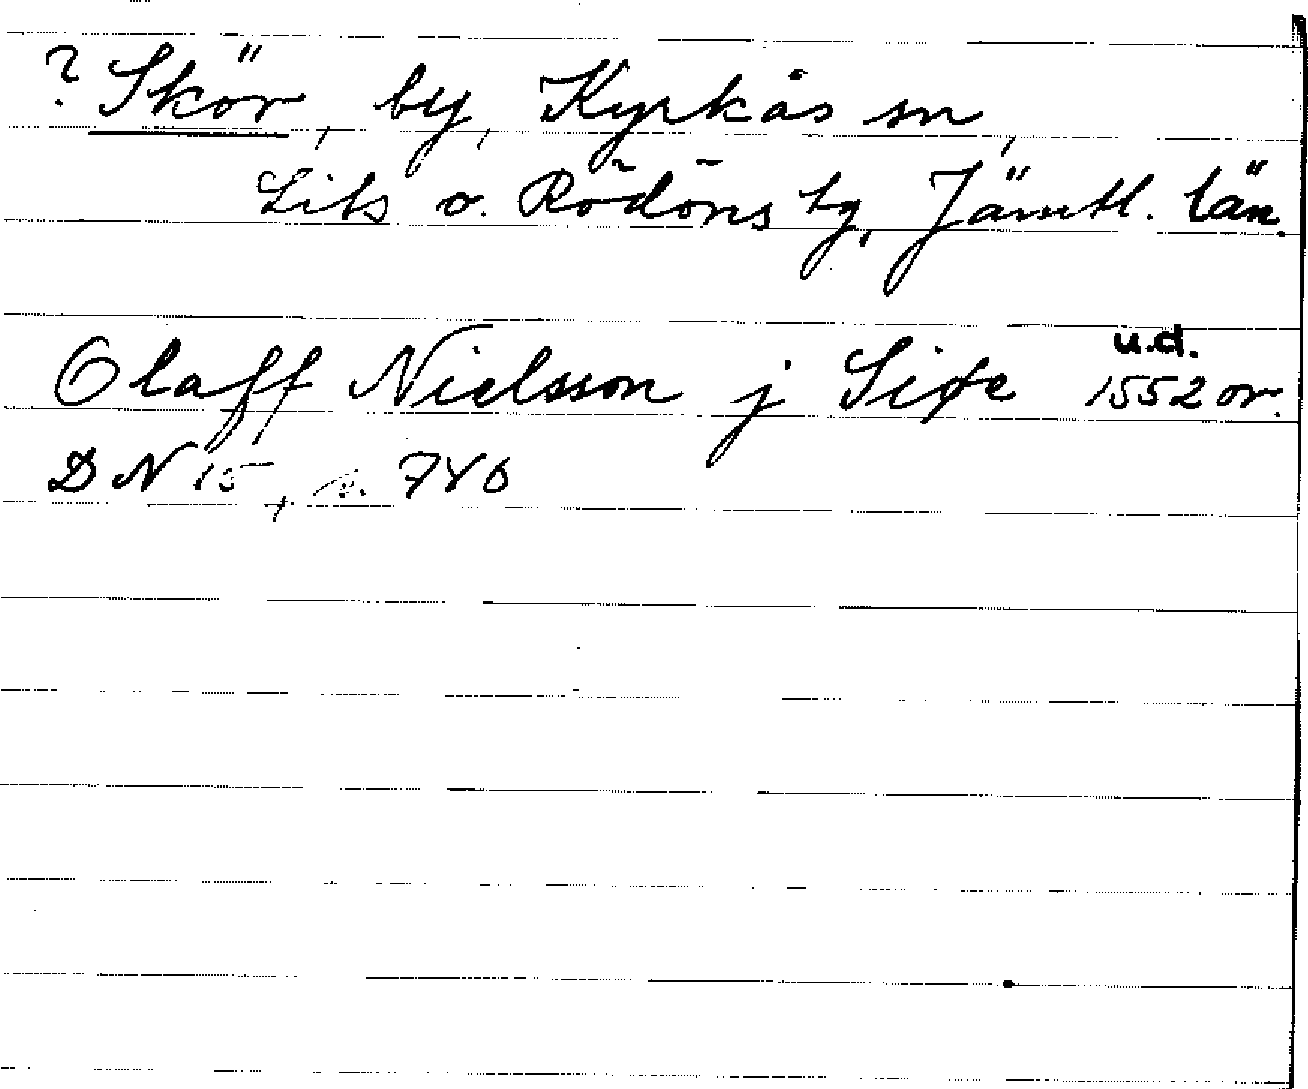 ? Skör, by, Kyrkås sn,
Lits o. Rödöns tg, Jämtl. län.
u.d.
Olaff Nielsson j Siøe 1552 or.
DN 15, s. 746